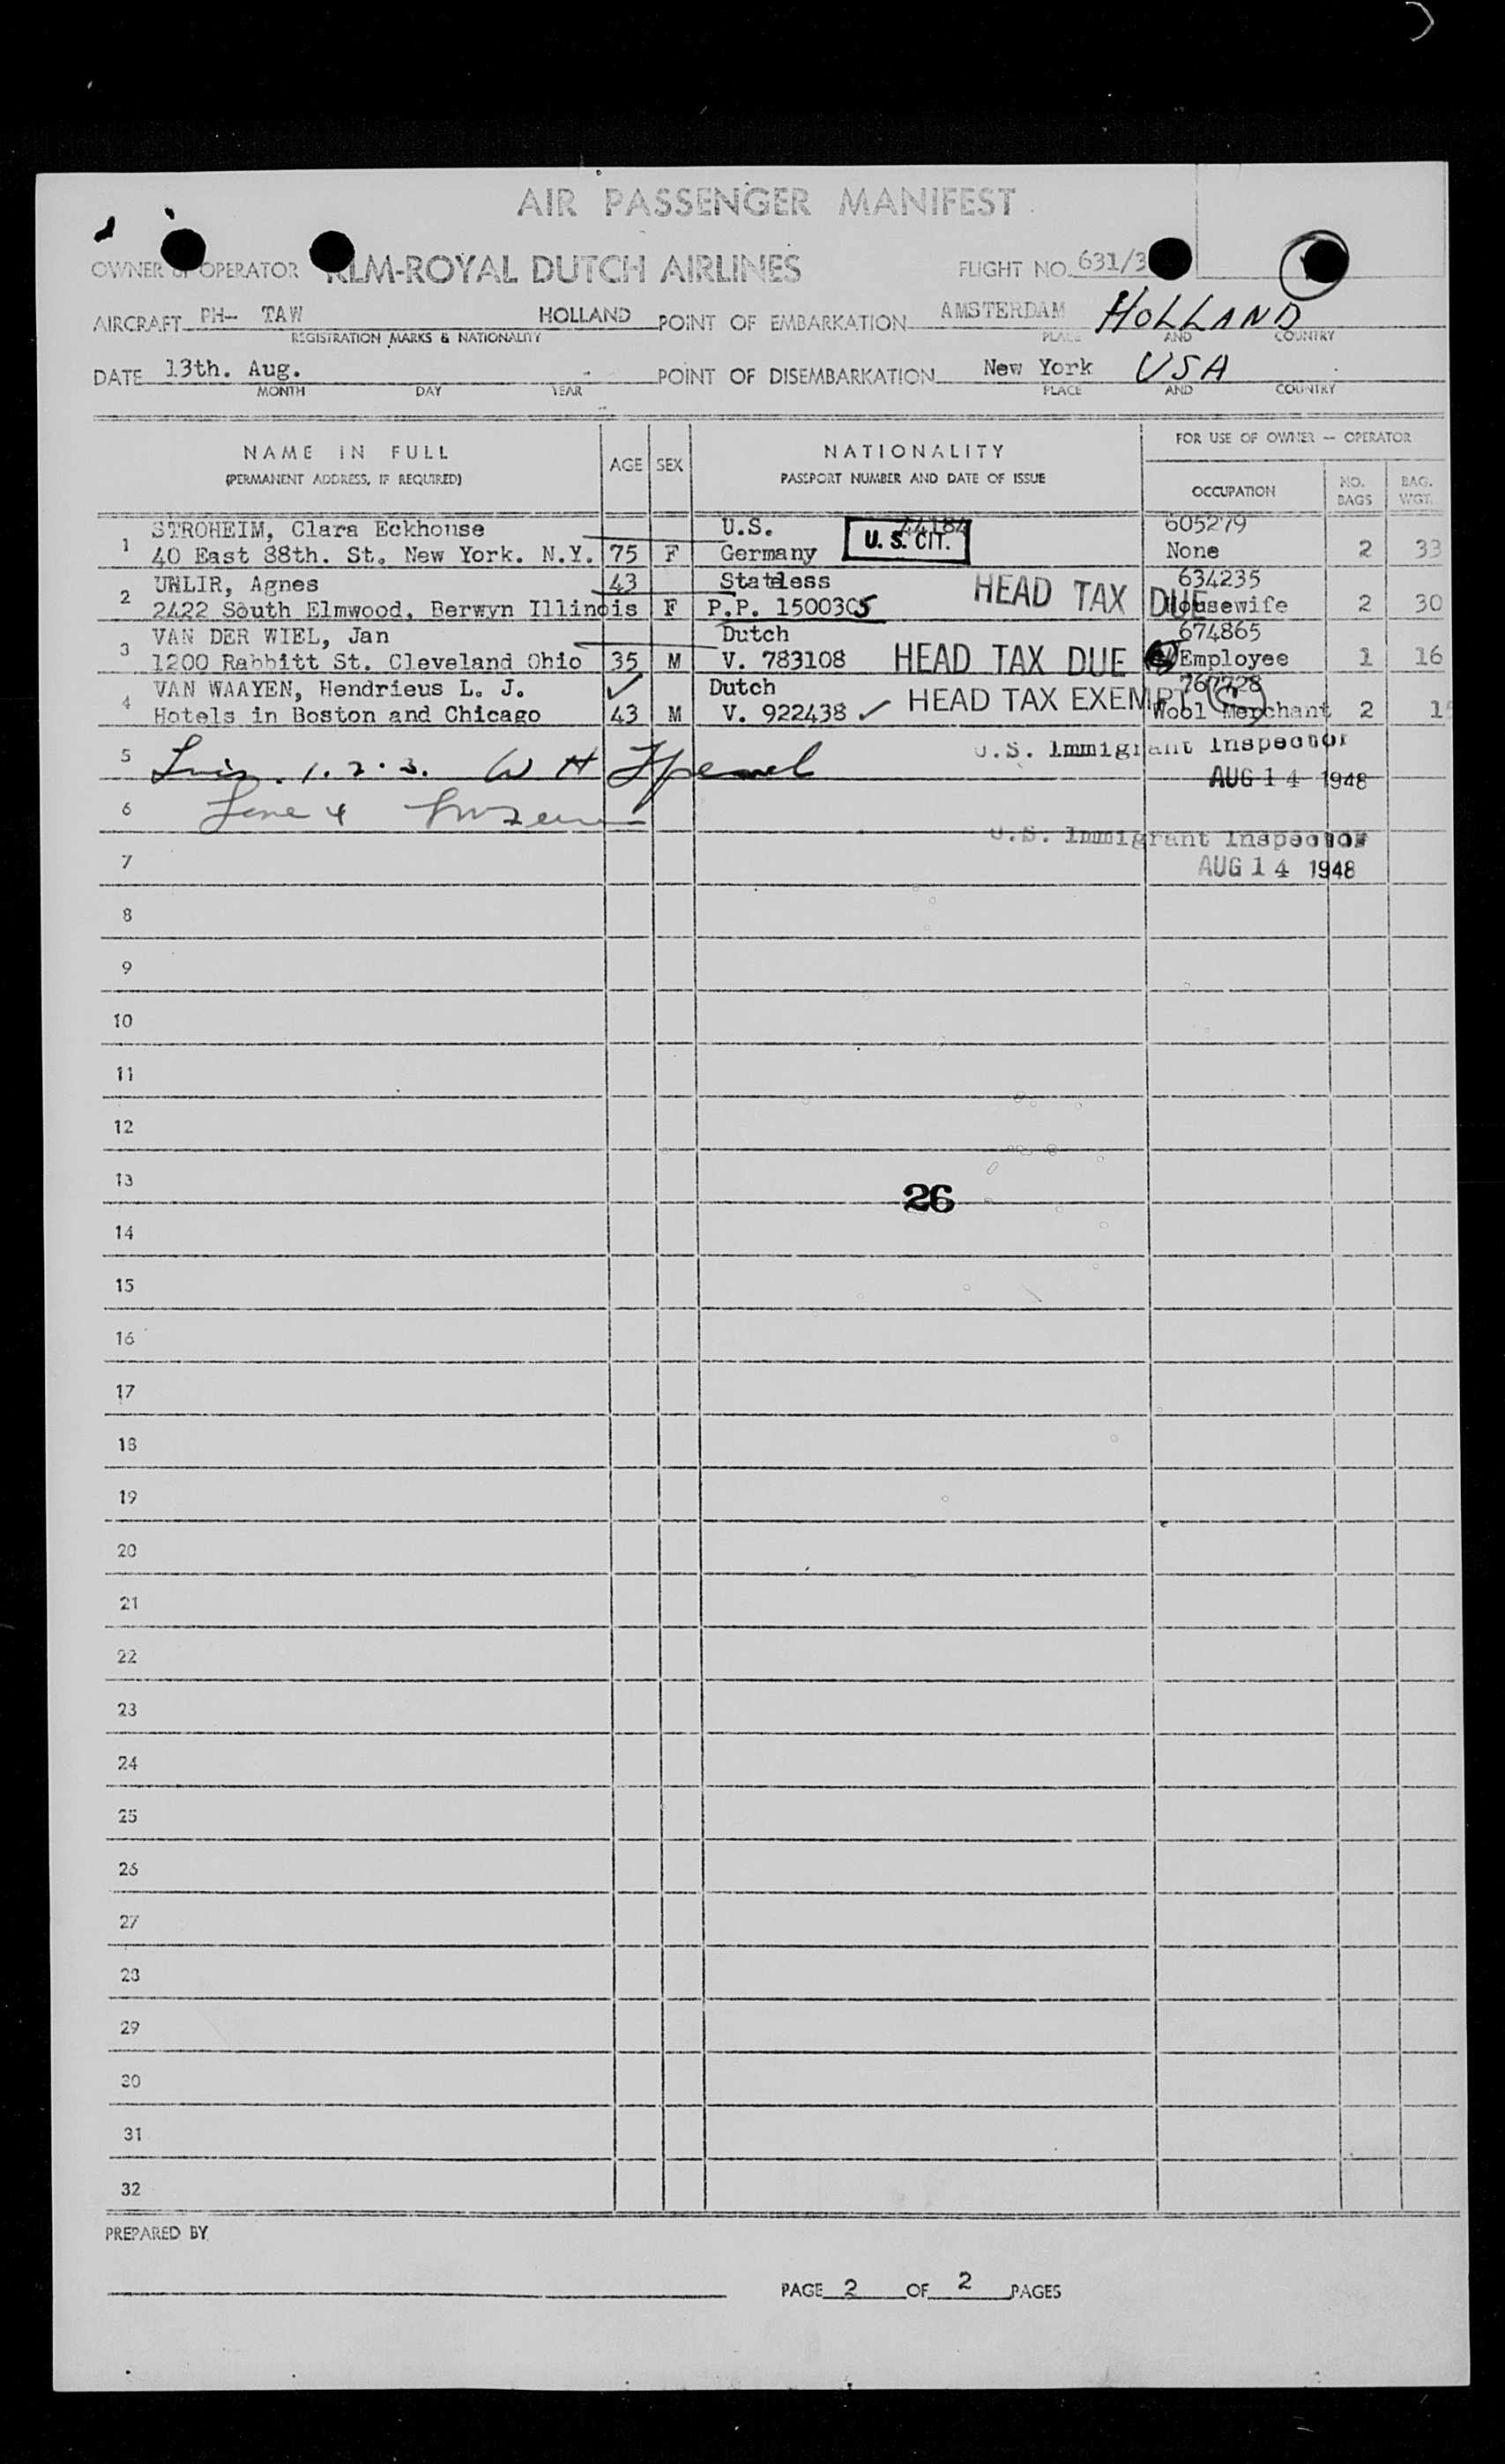 AIR PASSENGER MANIFEST
OWNER or OPERATOR KLM-ROYAL DUTCH AIRLINES FLIGHT NO. 631/3
AIRCRAFT PH- TAW HOLLAND POINT OF EMBARKATION AMSTERDAM HOLLAND
REGISTRATION MARKS & NATIONALITY PLACE AND COUNTRY
DATE 13th. Aug. POINT OF DISEMBARKATION New York USA
MONTH DAY YEAR PLACE AND COUNTRY
NAME IN FULL
(PERMANENT ADDRESS, IF REQUIRED)
AGE SEX
NATIONALITY
PASSPORT NUMBER AND DATE OF ISSUE
FOR USE OF OWNER — OPERATOR
OCCUPATION NO. BAGS BAG. WGT.
STROHEIM, Clara Eckhouse U.S. 44184 605279
1 40 East 88th. St. New York. N.Y. 75 F Germany U.S. CIT. None 2 33
Agnes 43 Stateless HEAD TAX DUE 634235
2 2422 South Elmwood, Berwyn Illinois F P.P. 1500305 Housewife 2 30
VAN DER WIEL, Jan Dutch 674865
3 1200 Rabbitt St. Cleveland Ohio 35 M V. 783108 HEAD TAX DUE Employee 1 16
VAN WAAYEN, Hendrieus L. J. Dutch HEAD TAX EXEMPT 767728
4 Hotels in Boston and Chicago 43 M V. 922438 Wool Merchant 2
5 1. 2. 3. W H U.S. Immigrant Inspector
AUG 14 1948
6 Line 4
U.S. Immigrant Inspector
7 AUG 14 1948
8
9
10
11
12
13
26
14
15
16
17
18
19
20
21
22
23
24
25
26
27
28
29
30
31
32
PREPARED BY
PAGE 2 OF 2 PAGES